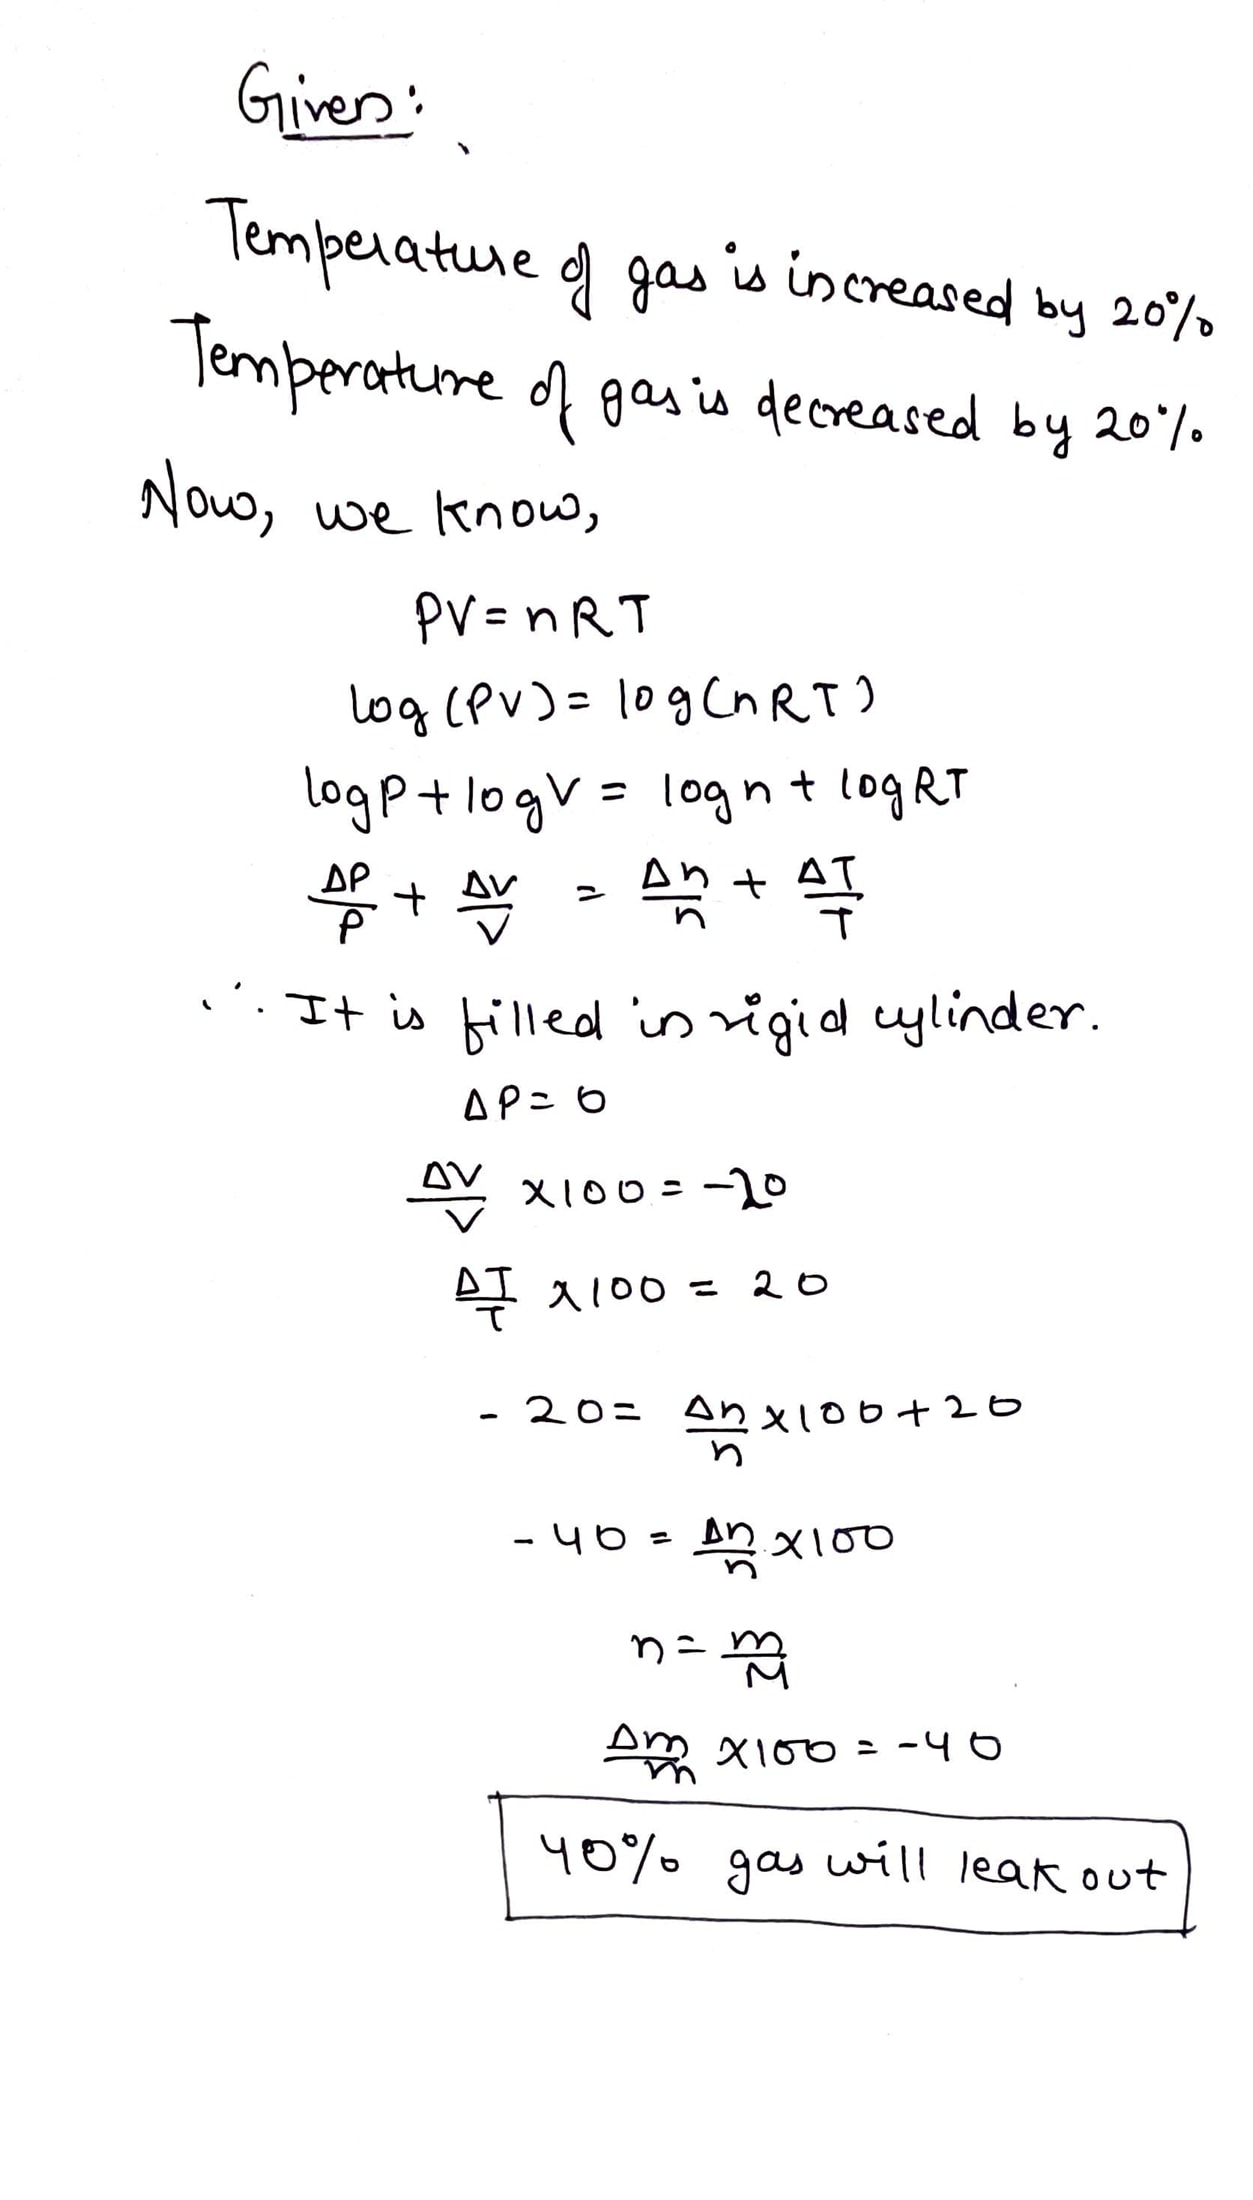 Given:
Temperature of gas is increased by 20%
Temperature of gas is decreased by 20%
Now, we know,
PV = nRT
log (PV) = log(nRT)
logP + logV = logn + logRT
ΔP/P + ΔV/V = Δn/n + ΔT/T
∵ It is filled in rigid cylinder.
ΔP = 0
ΔV/V ×100 = -20
ΔT/T ×100 = 20
- 20 = Δn/n ×100 + 20
- 40 = Δn/n ×100
n = m/M
Δm/m ×100 = -40
40% gas will leak out